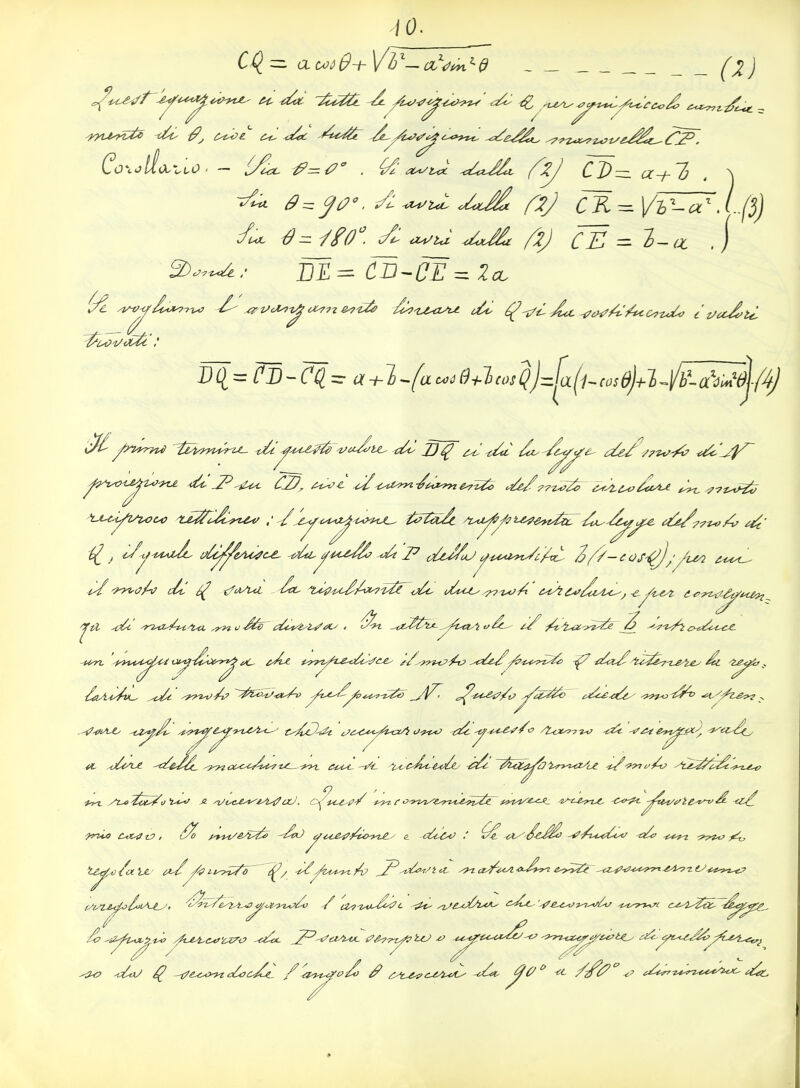 10.
CQ = a cosθ + √b² – a² sin²θ _ _ _ _ _ _ _ (2)
Quest'equazione ci dà tutte le posizioni di Q per ogni piccolo cambia=
mento di θ, cioè ci dà tutte le posizioni della manovella CP.
Corollario. – Sia θ=0°. Si avrà dalla (2) CD = a+b .
Sia θ = 90°. Si avrà dalla (2) CR = √b²–a² . (3)
Sia θ = 180°. Si avrà dalla (2) CE = b–a .
Donde: DE = CD–CE = 2a
Se vogliamo l'avanzamento lineare di Q si ha sostituendo i valori
trovati:
DQ = CD–CQ = a+b–(a cosθ+b cosQ)=[a(1–cosθ)+b–√b²–a²sin²θ].(4)
Il primo termine di questo valore di DQ ci dà la legge del moto di N
proiezione di P su CD, cioè il cambiamento del moto circolare in moto
reciproco rettilineo; l'equazione totale rappresenta la legge del moto di
Q, il quale differisce da quello di P della quantità b(1–cosQ); per cui
il moto di Q sarà la risultante di due moti circolari, e per conseguen=
za di natura molto diversa. In altre parole il tirante b introduce
un'inuguaglianza che impedisce il moto del punto Q dal ritenere la rego=
larità di moto trovato pel punto N. Questo fatto diede molto a pen=
sare agli ingegneri che si occuparono di questo ramo di scienza, vale
a dire delle macchine in cui si richiede di trasformare il moto rettilineo
in rotatorio e viceversa. Quest'inconveniente invece viene così favorevole al
mio caso. Io inverto la questione e dico: Se a bello studio do un moto
regolare al punto Q, il punto P dovrà naturalmente assumerne uno
irregolare. Interrogando l'analisi si vedrà che secondo una certa legge
lo spazio percorso da P sarà sempre o uguale o maggiore di quello percor=
so da Q secondochè l'angolo θ crescerà da 90° a 180° o diminuirà da